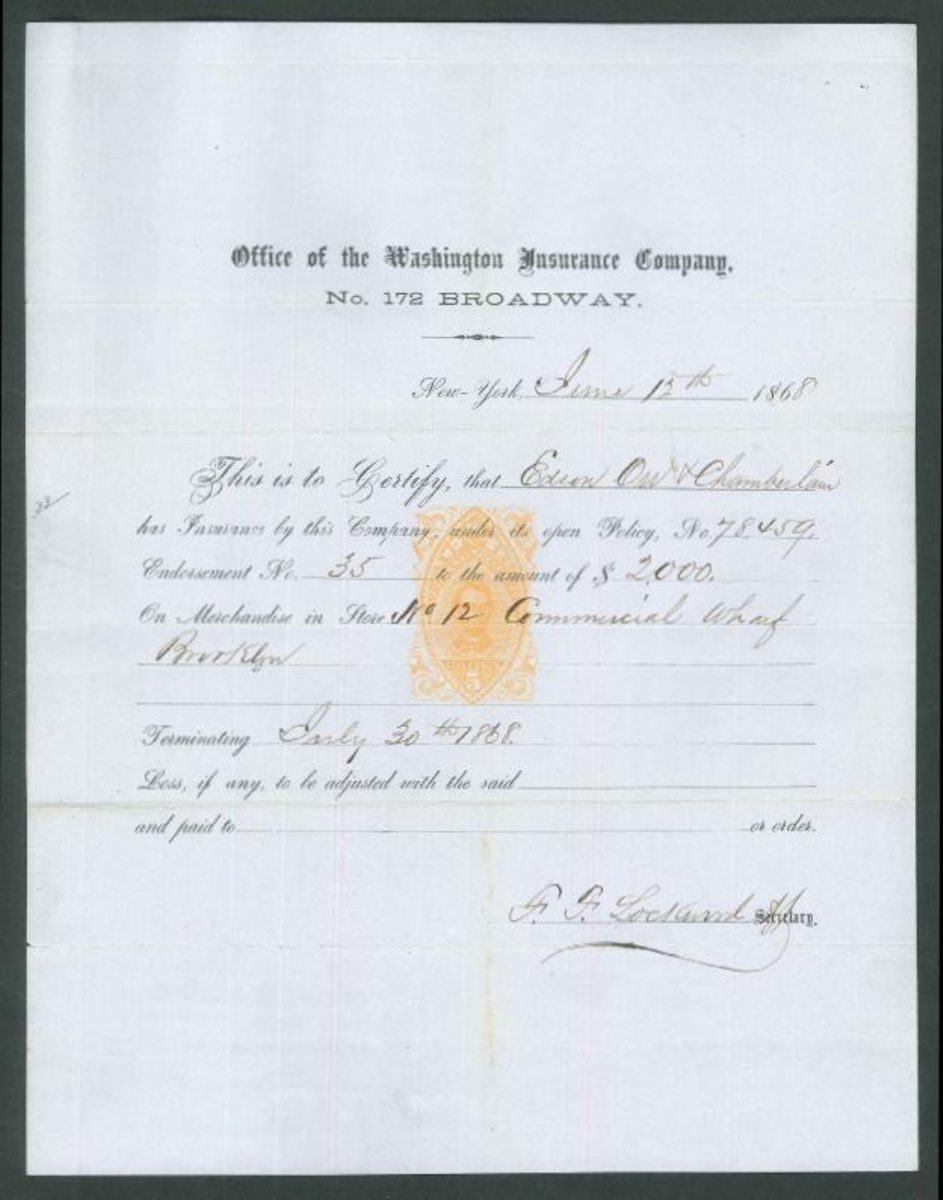 Office of the Washington Insurance Company,
No. 172 BROADWAY.
New-York, June 15th 1868
This is to Certify, that Edson Orr & Chamberlain
has Insurance by this Company, under its open Policy, No. 78459,
Endorsement No. 35 to the amount of $ 2,000.
On Merchandise in Store No 12 Commercial Wharf
Brooklyn
Terminating July 30th 1868.
Loss, if any, to be adjusted with the said
and paid to or order.
F. F. Lockwood Secretary.
5